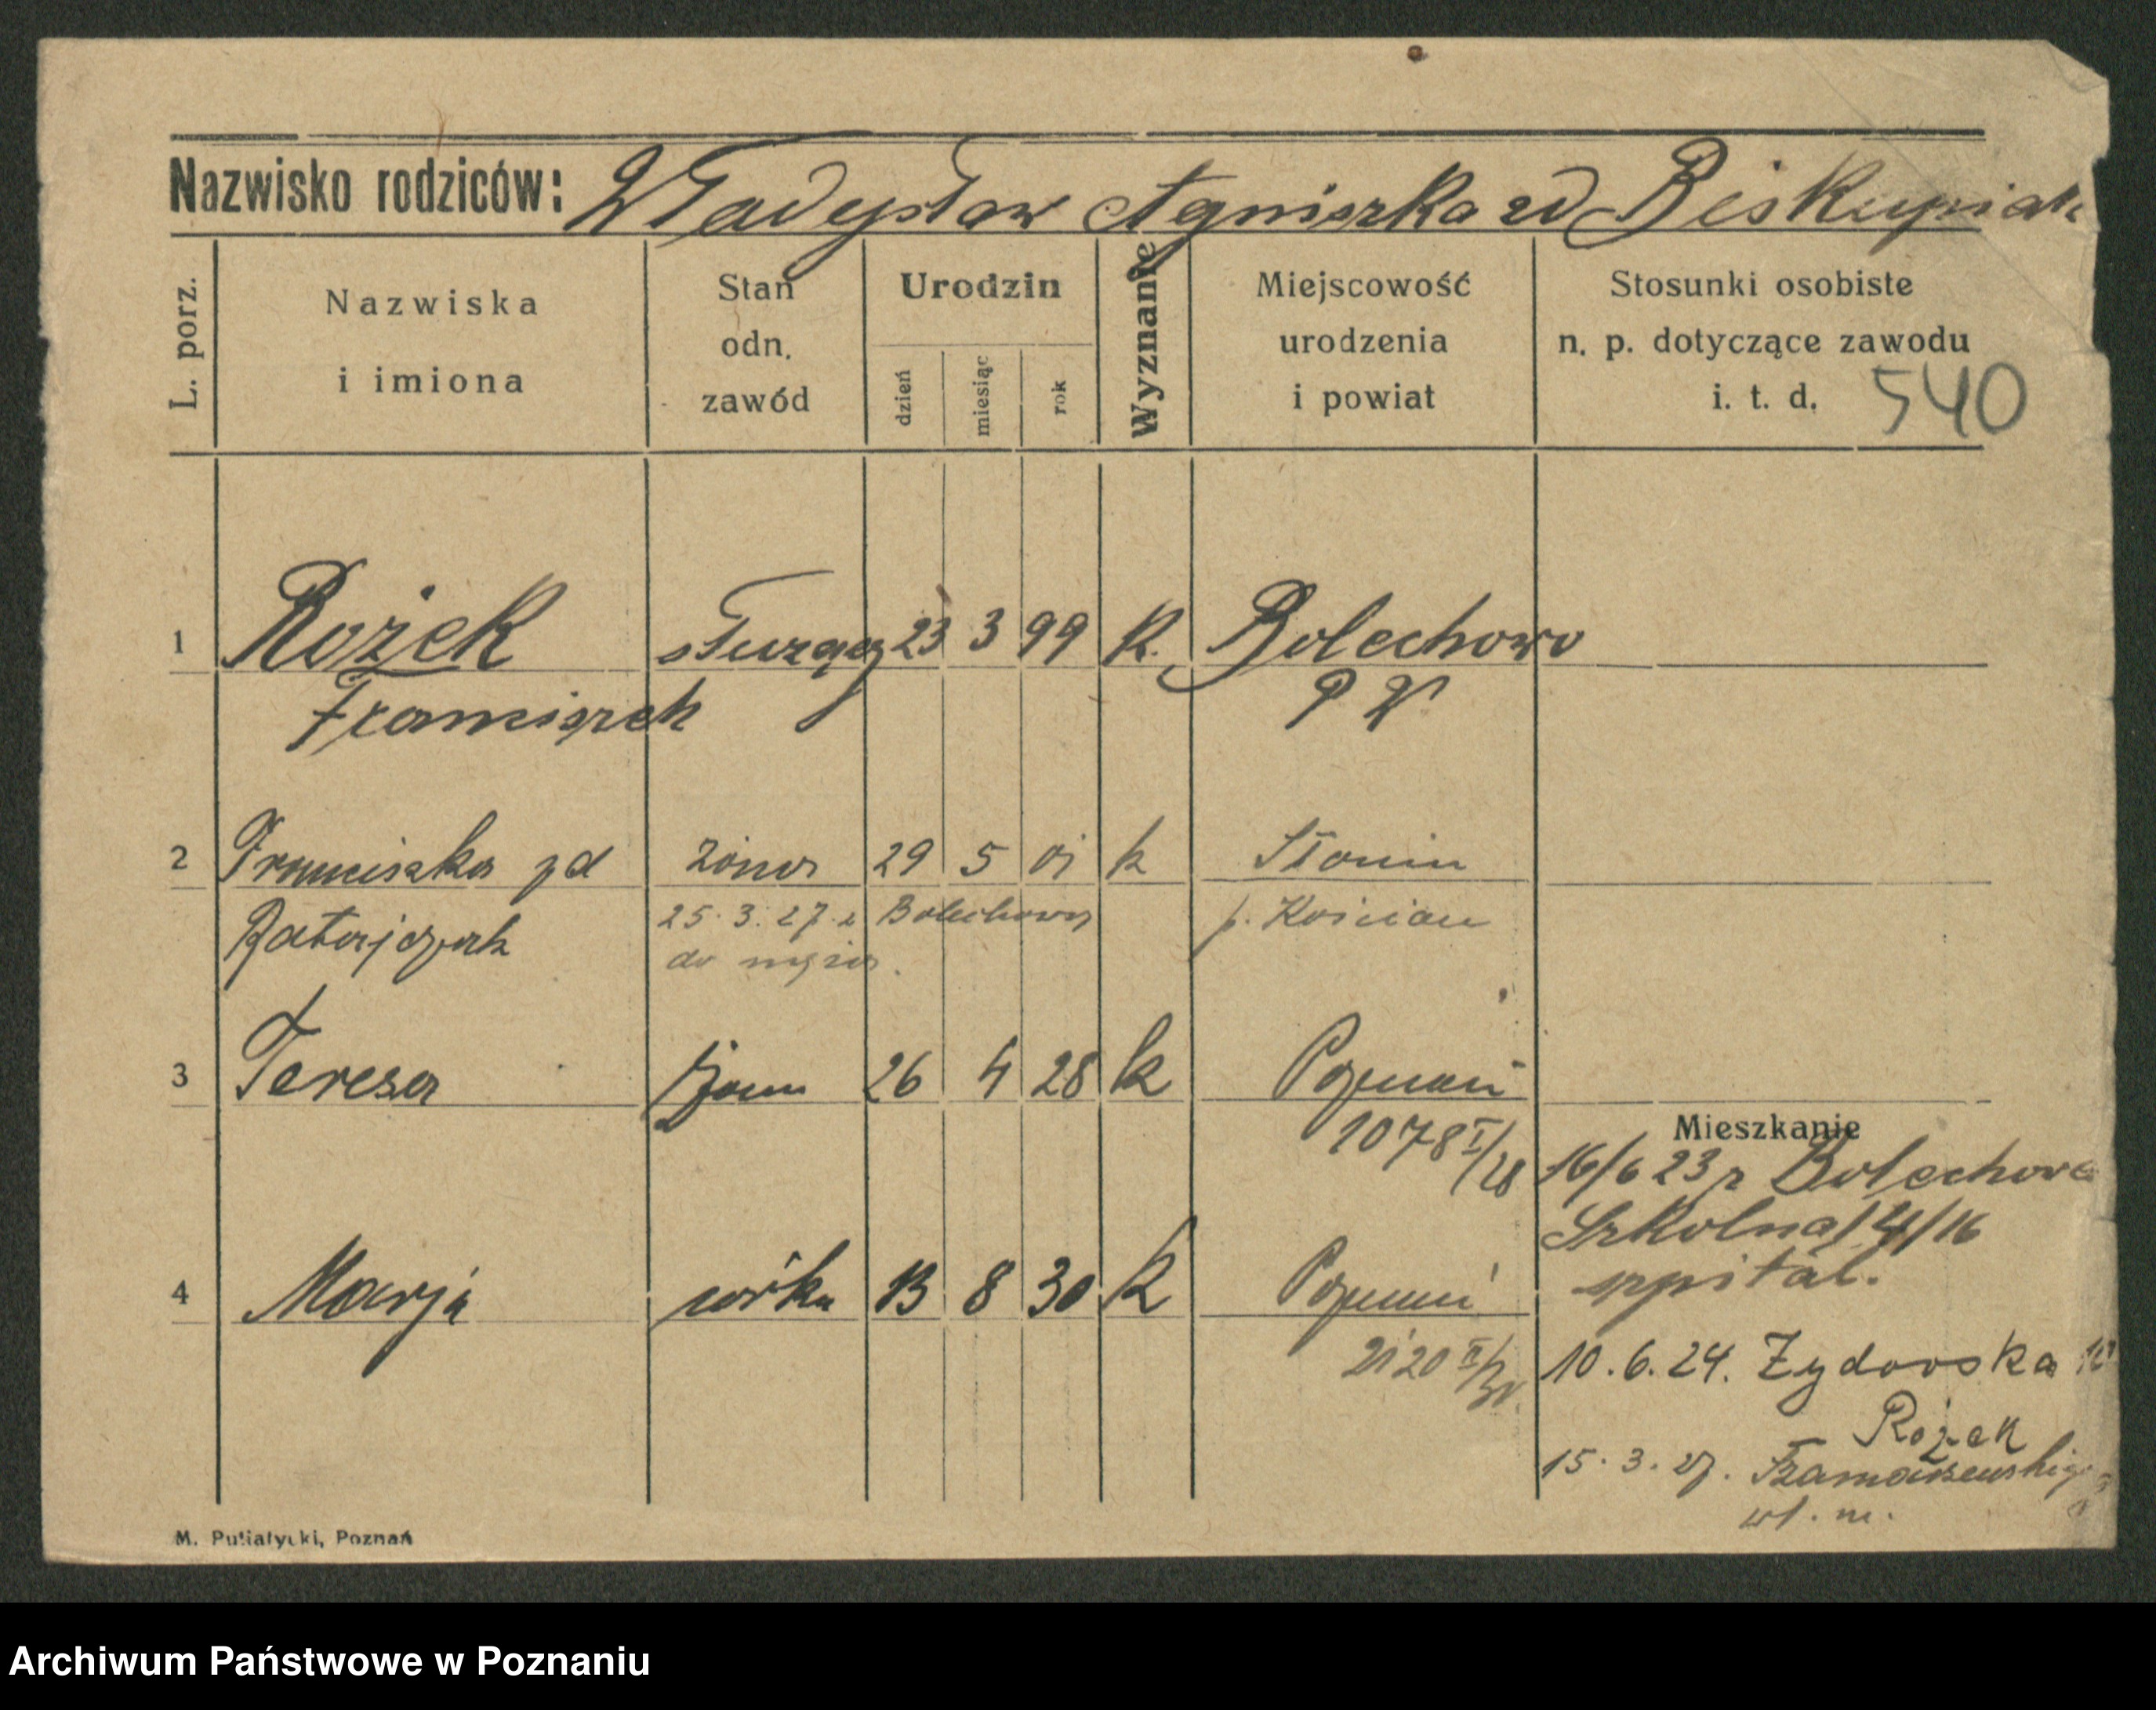 Nazwisko rodziców: Władysław Agniszka zd Biskupiak
L. porz.
Nazwiska
i imiona
Stan
odn.
zawód
Urodzin
dzień
miesiąc
rok
Wyznanie
Miejscowość
urodzenia
i powiat
Stosunki osobiste
n. p. dotyczące zawodu
i. t. d.
540
1 Rożek służący 23 3 99 K. Bolechowo
Franciszek P W
2 Franciszka zd żona 29 5 01 k Słonin
Ratajczak 25.3.27. z Bolechowa p. Kościan
do męża.
3 Teresa 26 4 28 k Poznań
1078 I/28
Mieszkanie
16/6 23 z Bolechowa
Szkolna 14/16
szpital.
4 Marja córka 13 8 30 k Poznań
2120 II/30.
10.6.24. Żydowska
Rożek
15.3.27.
wł. m.
M. Putiatycki, Poznań
Archiwum Państwowe w Poznaniu